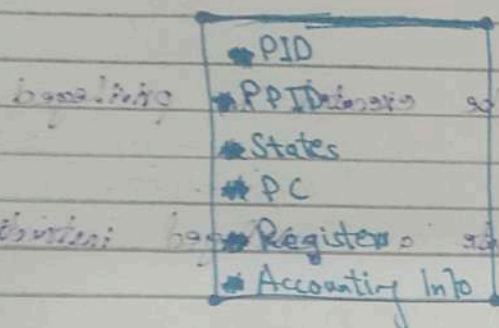 * PID
* PPID
* States
* PC
* Registers
* Accounting Info